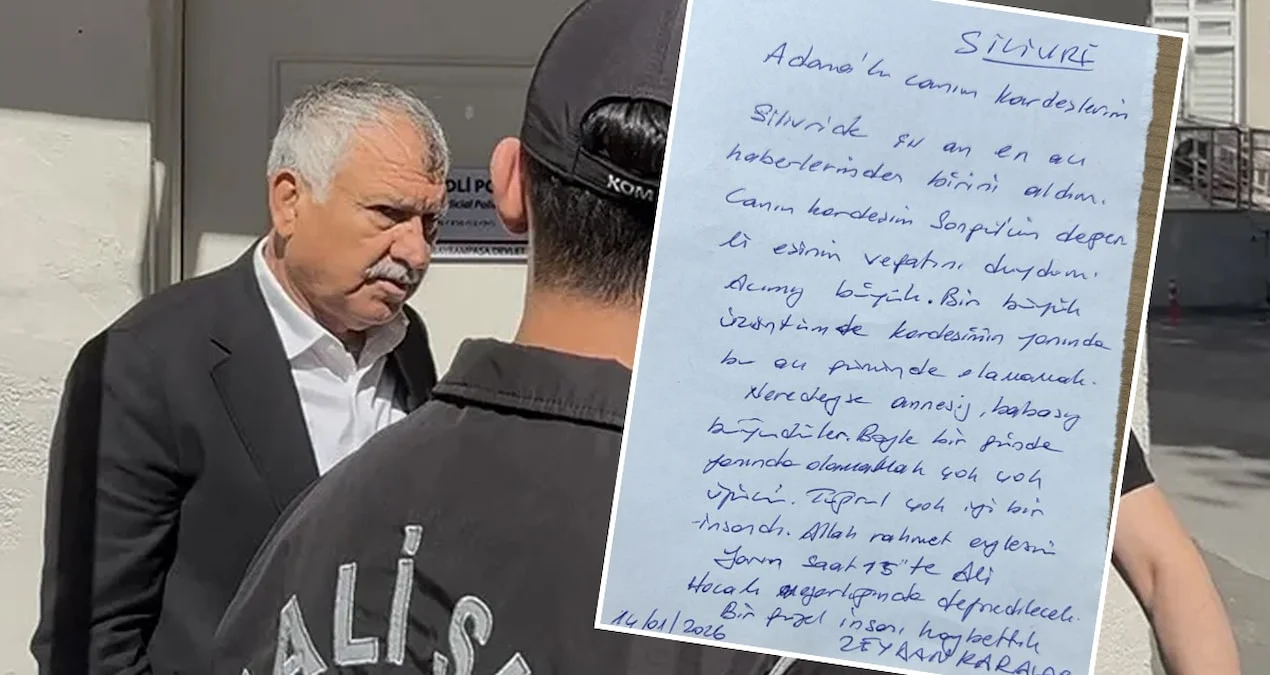 DLİ PO
icial Polic
AYRAMPAŞA DEVLET
KOM
ALİS
SİLİVRİ
Adana'lı canım kardeşlerim
Silivride şu an en acı
haberlerinden birini aldım.
Canım kardeşim Songül'ün değer
li eşinin vefatını duydum.
Acımız büyük. Bir büyük
üzüntüm de kardeşimin yanında
bu acı gününde olamamak.
Neredeyse annesiz, babasız
büyüdüler. Böyle bir günde
yanında olamamak çok çok
üzücü. Tuğrul çok iyi bir
insandı. Allah rahmet eylesin
Yarın saat 15'te Ali
Hocalı mezarlığında defnedilecek.
Bir güzel insanı kaybettik
14/01/2026
ZEYDAN KARALAR